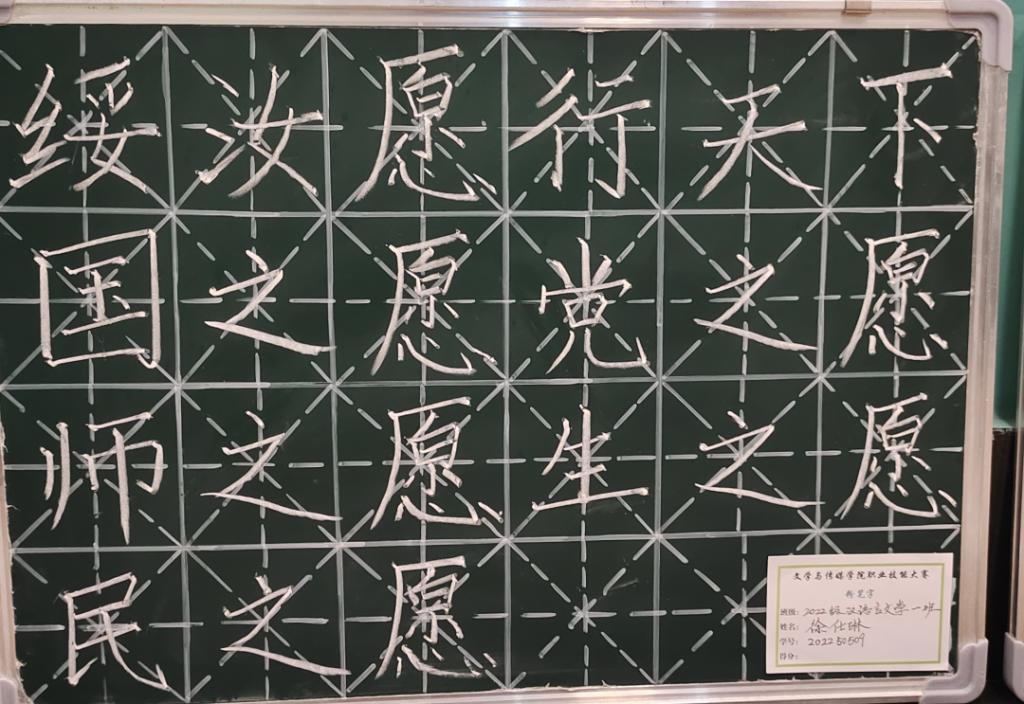 绥汝愿行天下
国之愿党之愿
师之愿生之愿
民之愿
文学与传媒学院职业技能大赛
粉笔字
班级：2022级汉语言文学一班
姓名：徐仕琳
学号：202250509
得分：